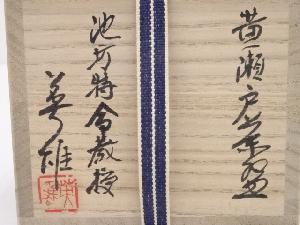 黄瀬戸茶盌
池坊特命教授
英雄